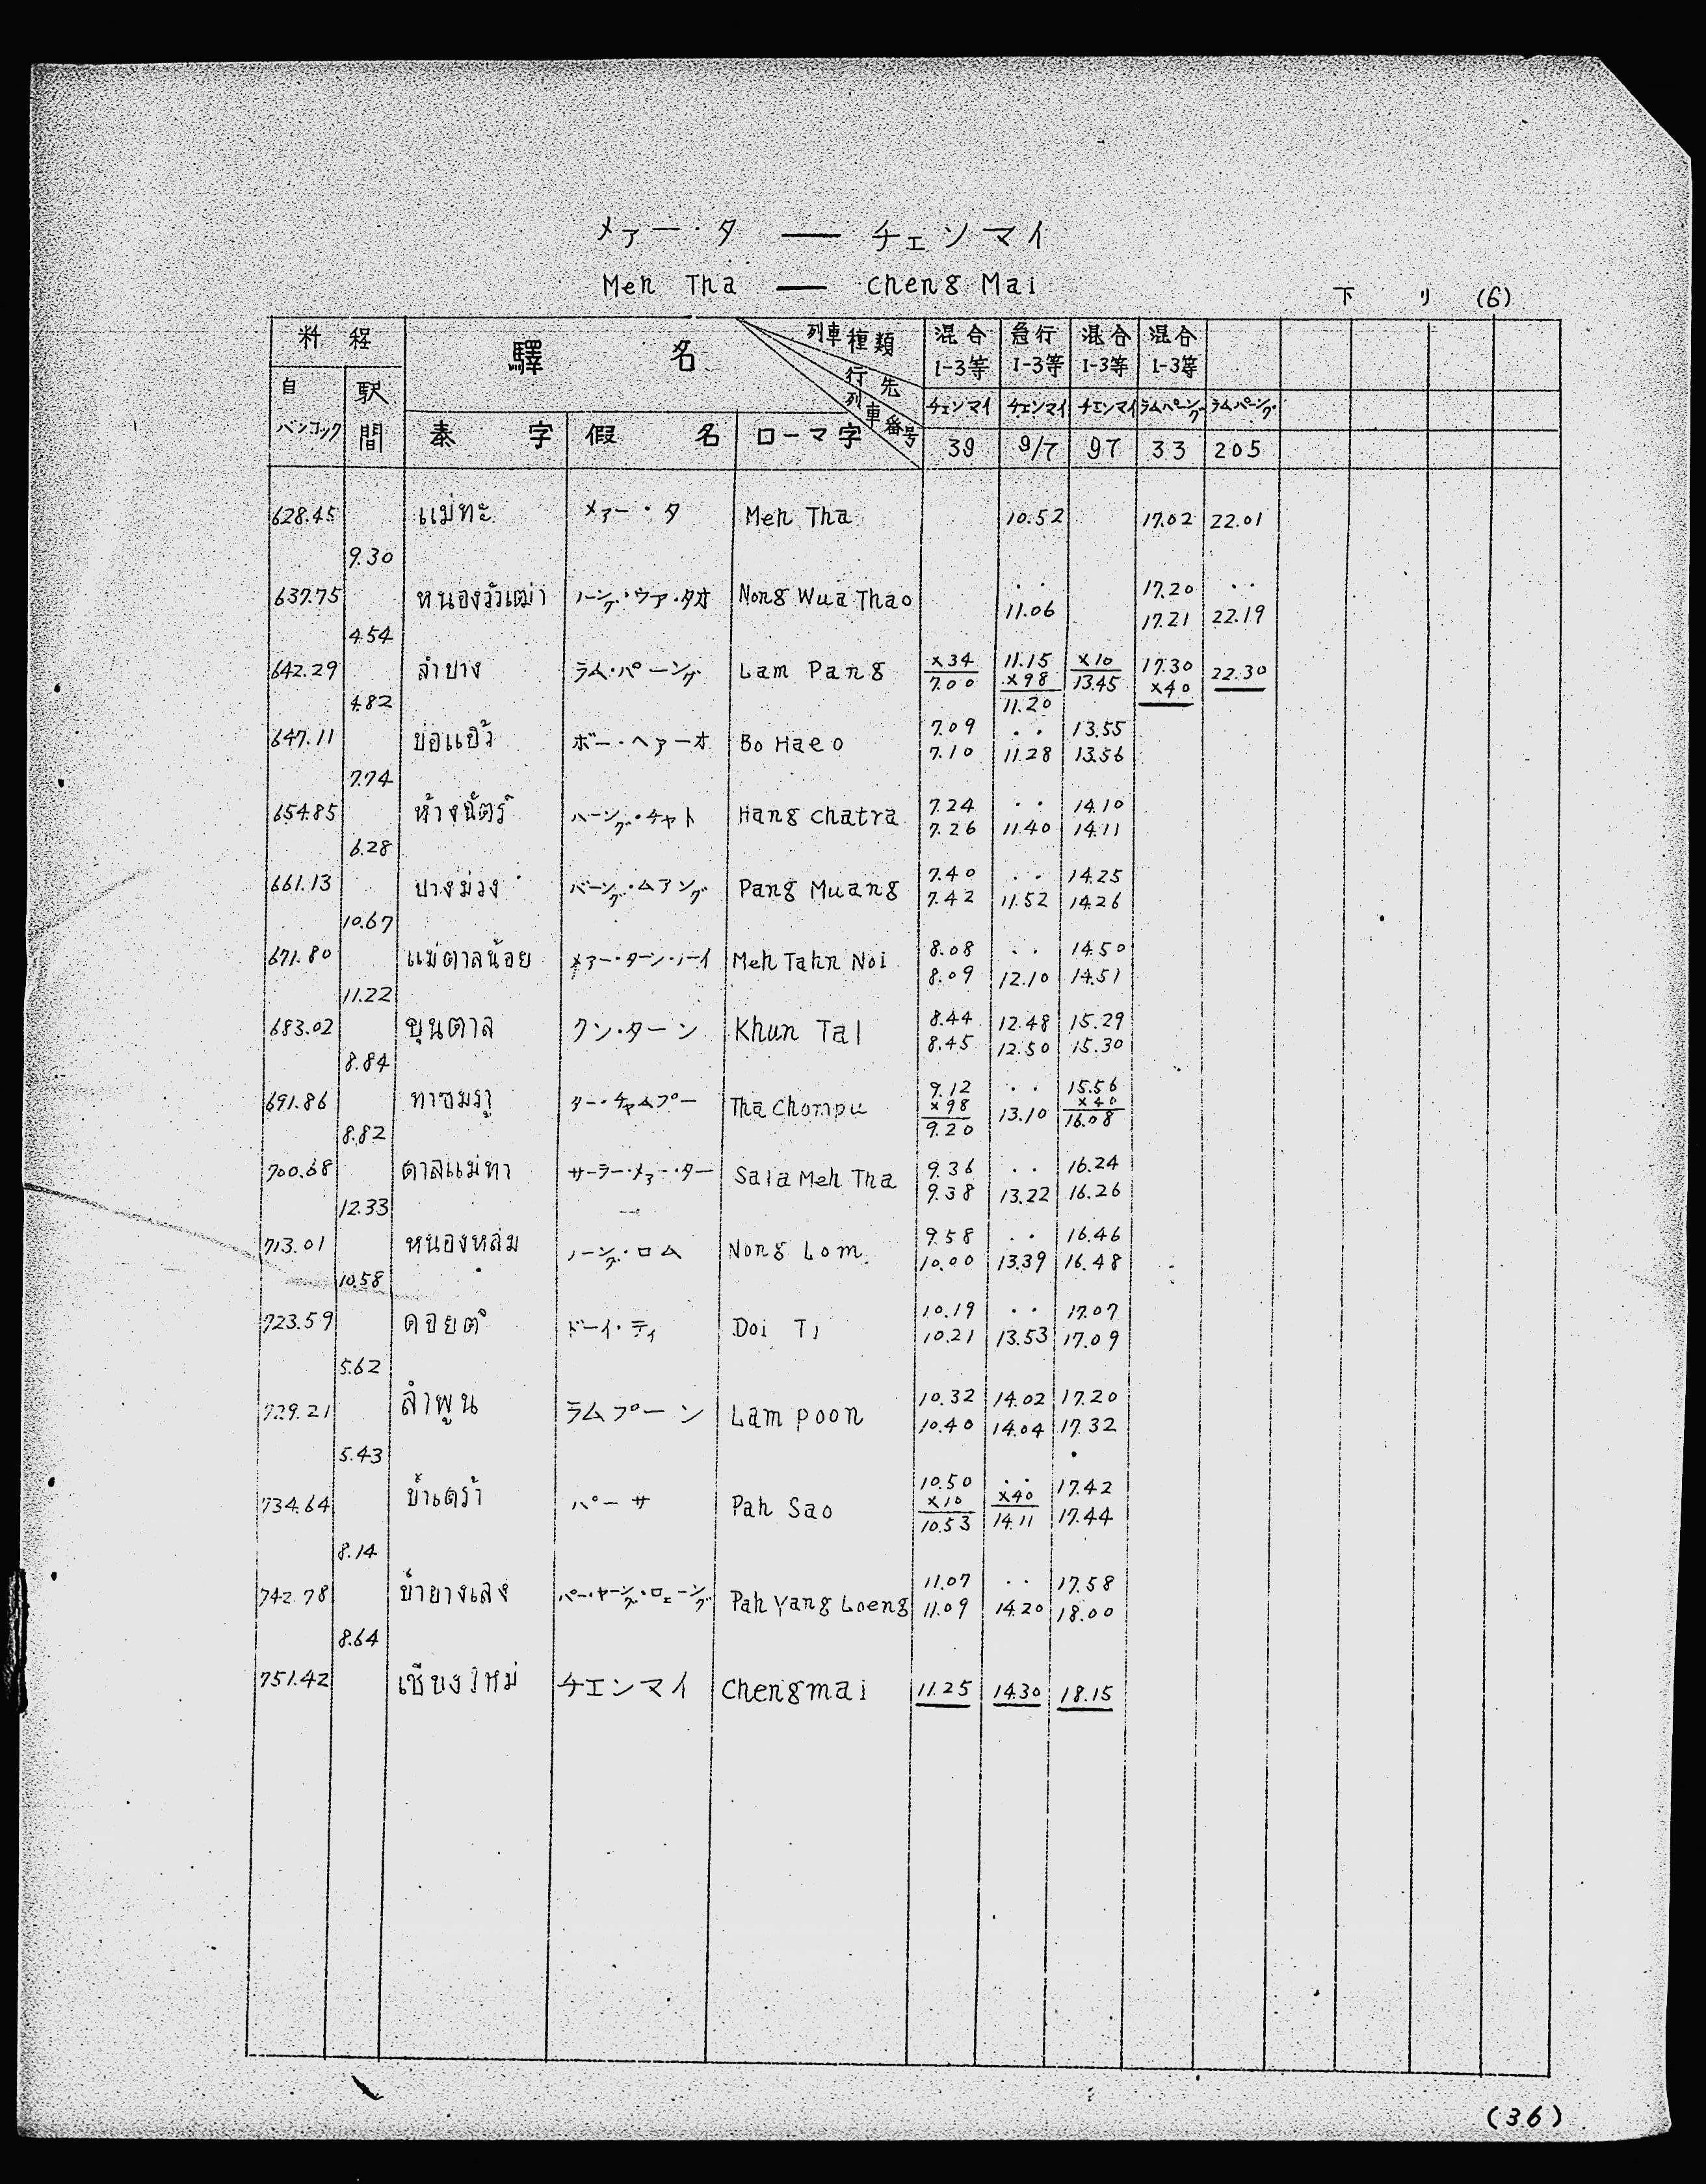 メアー・タ — チェンマイ
Meh Tha — Cheng Mai
下 リ (6)
料 程 驛 名 列車種類 混合 急行 混合 混合
1-3等 1-3等 1-3等 1-3等
自 バンコック 駅間 行先 チェンマイ チェンマイ チェンマイ ラムパーング ラムパーング
泰 字 假 名 ローマ字 列車番号 39 9/7 97 33 205
628.45 แม่ทะ メアー・タ Meh Tha 10.52 17.02 22.01
9.30
637.75 หนองวัวเฒ่า ノーング・ウア・タオ Nong Wua Thao .. 17.20 ..
11.06 17.21 22.19
4.54
642.29 ลำปาง ラム・パーング Lam Pang x34 11.15 x10 17.30 22.30
7.00 x98 13.45 x40
11.20
4.82
647.11 บ่อแฮ้ว ボー・ヘアーオ Bo Haeo 7.09 .. 13.55
7.10 11.28 13.56
7.74
654.85 ห้างฉัตร์ ハーング・チャト Hang chatra 7.24 .. 14.10
7.26 11.40 14.11
6.28
661.13 ปางม่วง パーング・ムアング Pang Muang 7.40 .. 14.25
7.42 11.52 14.26
10.67
671.80 แม่ตาลน้อย メアー・ターン・ノーイ Meh Tahn Noi 8.08 .. 14.50
8.09 12.10 14.51
11.22
683.02 ขุนตาล クン・ターン Khun Tal 8.44 12.48 15.29
8.45 12.50 15.30
8.84
691.86 ทาชมภู ター・チャムプー Tha Chompu 9.12 .. 15.56
x98 13.10 x40
9.20 16.08
8.82
700.68 ศาลแม่ทา サーラー・メアー・ター Sala Meh Tha 9.36 .. 16.24
9.38 13.22 16.26
12.33
713.01 หนองหล่ม ノーング・ロム Nong Lom 9.58 .. 16.46
10.00 13.39 16.48
10.58
723.59 ดอยติ ドーイ・ティ Doi Ti 10.19 .. 17.07
10.21 13.53 17.09
5.62
729.21 ลำพูน ラムプーン Lam poon 10.32 14.02 17.20
10.40 14.04 17.32
5.43
734.64 ป่าเศร้า パーサ Pah Sao 10.50 .. 17.42
x10 x40 17.44
10.53 14.11
8.14
742.78 ป่ายางเลง パー・ヤーング・ロェーング Pah Yang Loeng 11.07 .. 17.58
11.09 14.20 18.00
8.64
751.42 เชียงใหม่ チエンマイ Chengmai 11.25 14.30 18.15
(36)